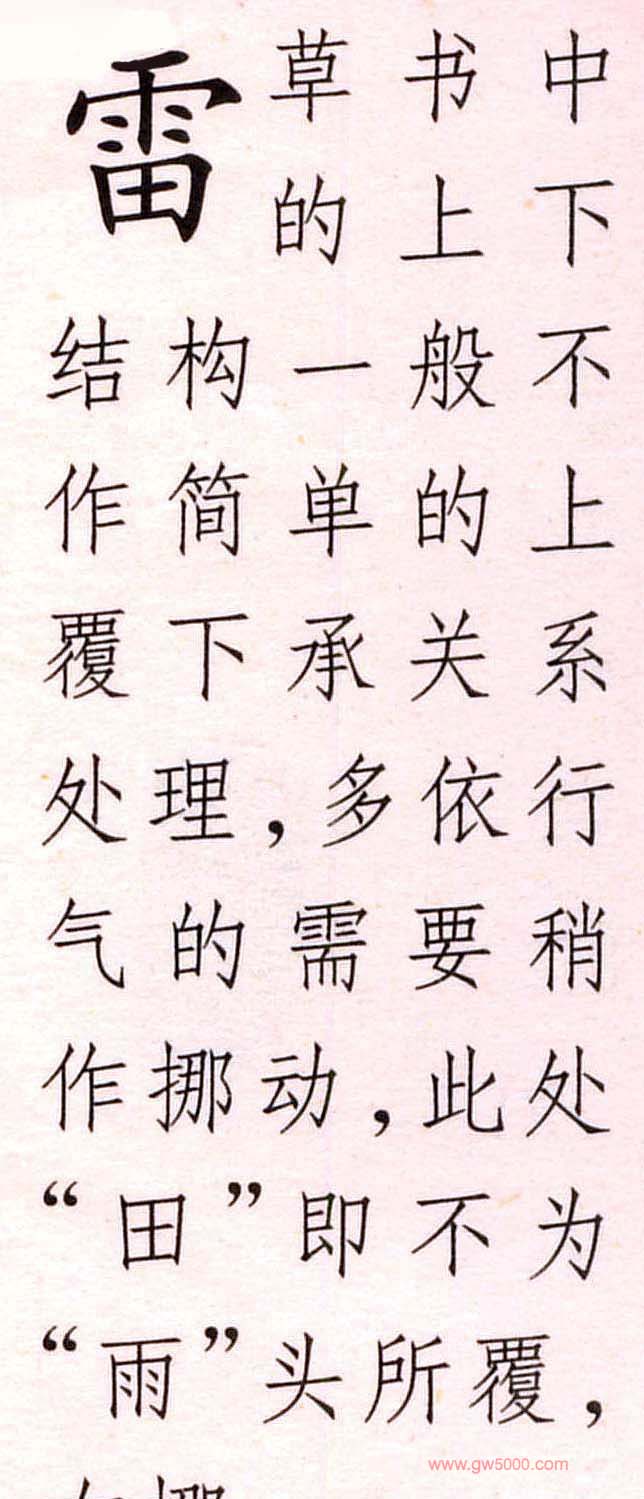 雷
草书中
的上下
结构一般不
作简单的上
覆下承关系
处理，多依行
气的需要稍
作挪动，此处
“田”即不为
“雨”头所覆，
www.gw5000.com